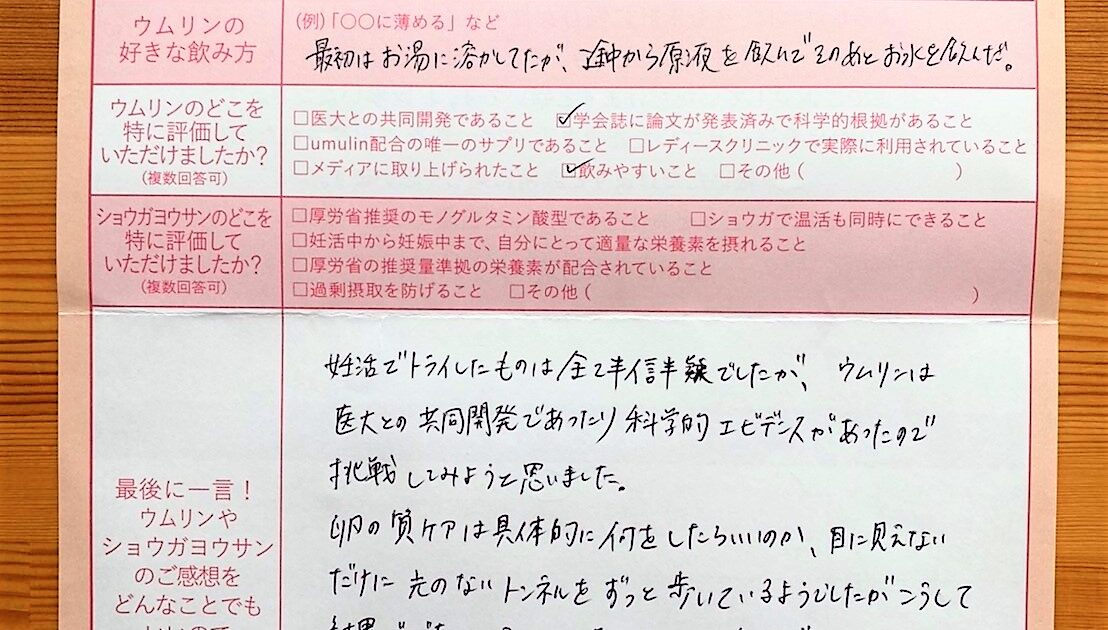 ウムリンの
好きな飲み方
(例)「〇〇に薄める」など
最初はお湯に溶かしてたが、途中から原液を飲んでそのあとお水を飲んだ。
ウムリンのどこを
特に評価して
いただけましたか?
(複数回答可)
□医大との共同開発であること ☑学会誌に論文が発表済みで科学的根拠があること
□umulin配合の唯一のサプリであること □レディースクリニックで実際に利用されていること
□メディアに取り上げられたこと ☑飲みやすいこと □その他( )
ショウガヨウサンのどこを
特に評価して
いただけましたか?
(複数回答可)
□厚労省推奨のモノグルタミン酸型であること □ショウガで温活も同時にできること
□妊活中から妊娠中まで、自分にとって適量な栄養素を摂れること
□厚労省の推奨量準拠の栄養素が配合されていること
□過剰摂取を防げること □その他( )
最後に一言!
ウムリンや
ショウガヨウサン
のご感想を
どんなことでも
妊活でトライしたものは全て半信半疑でしたが、ウムリンは
医大との共同開発であったり科学的エビデンスがあったので
挑戦してみようと思いました。
卵の質ケアは具体的に何をしたらいいのか、目に見えない
だけに光のないトンネルをずっと歩いているようでしたがこうして